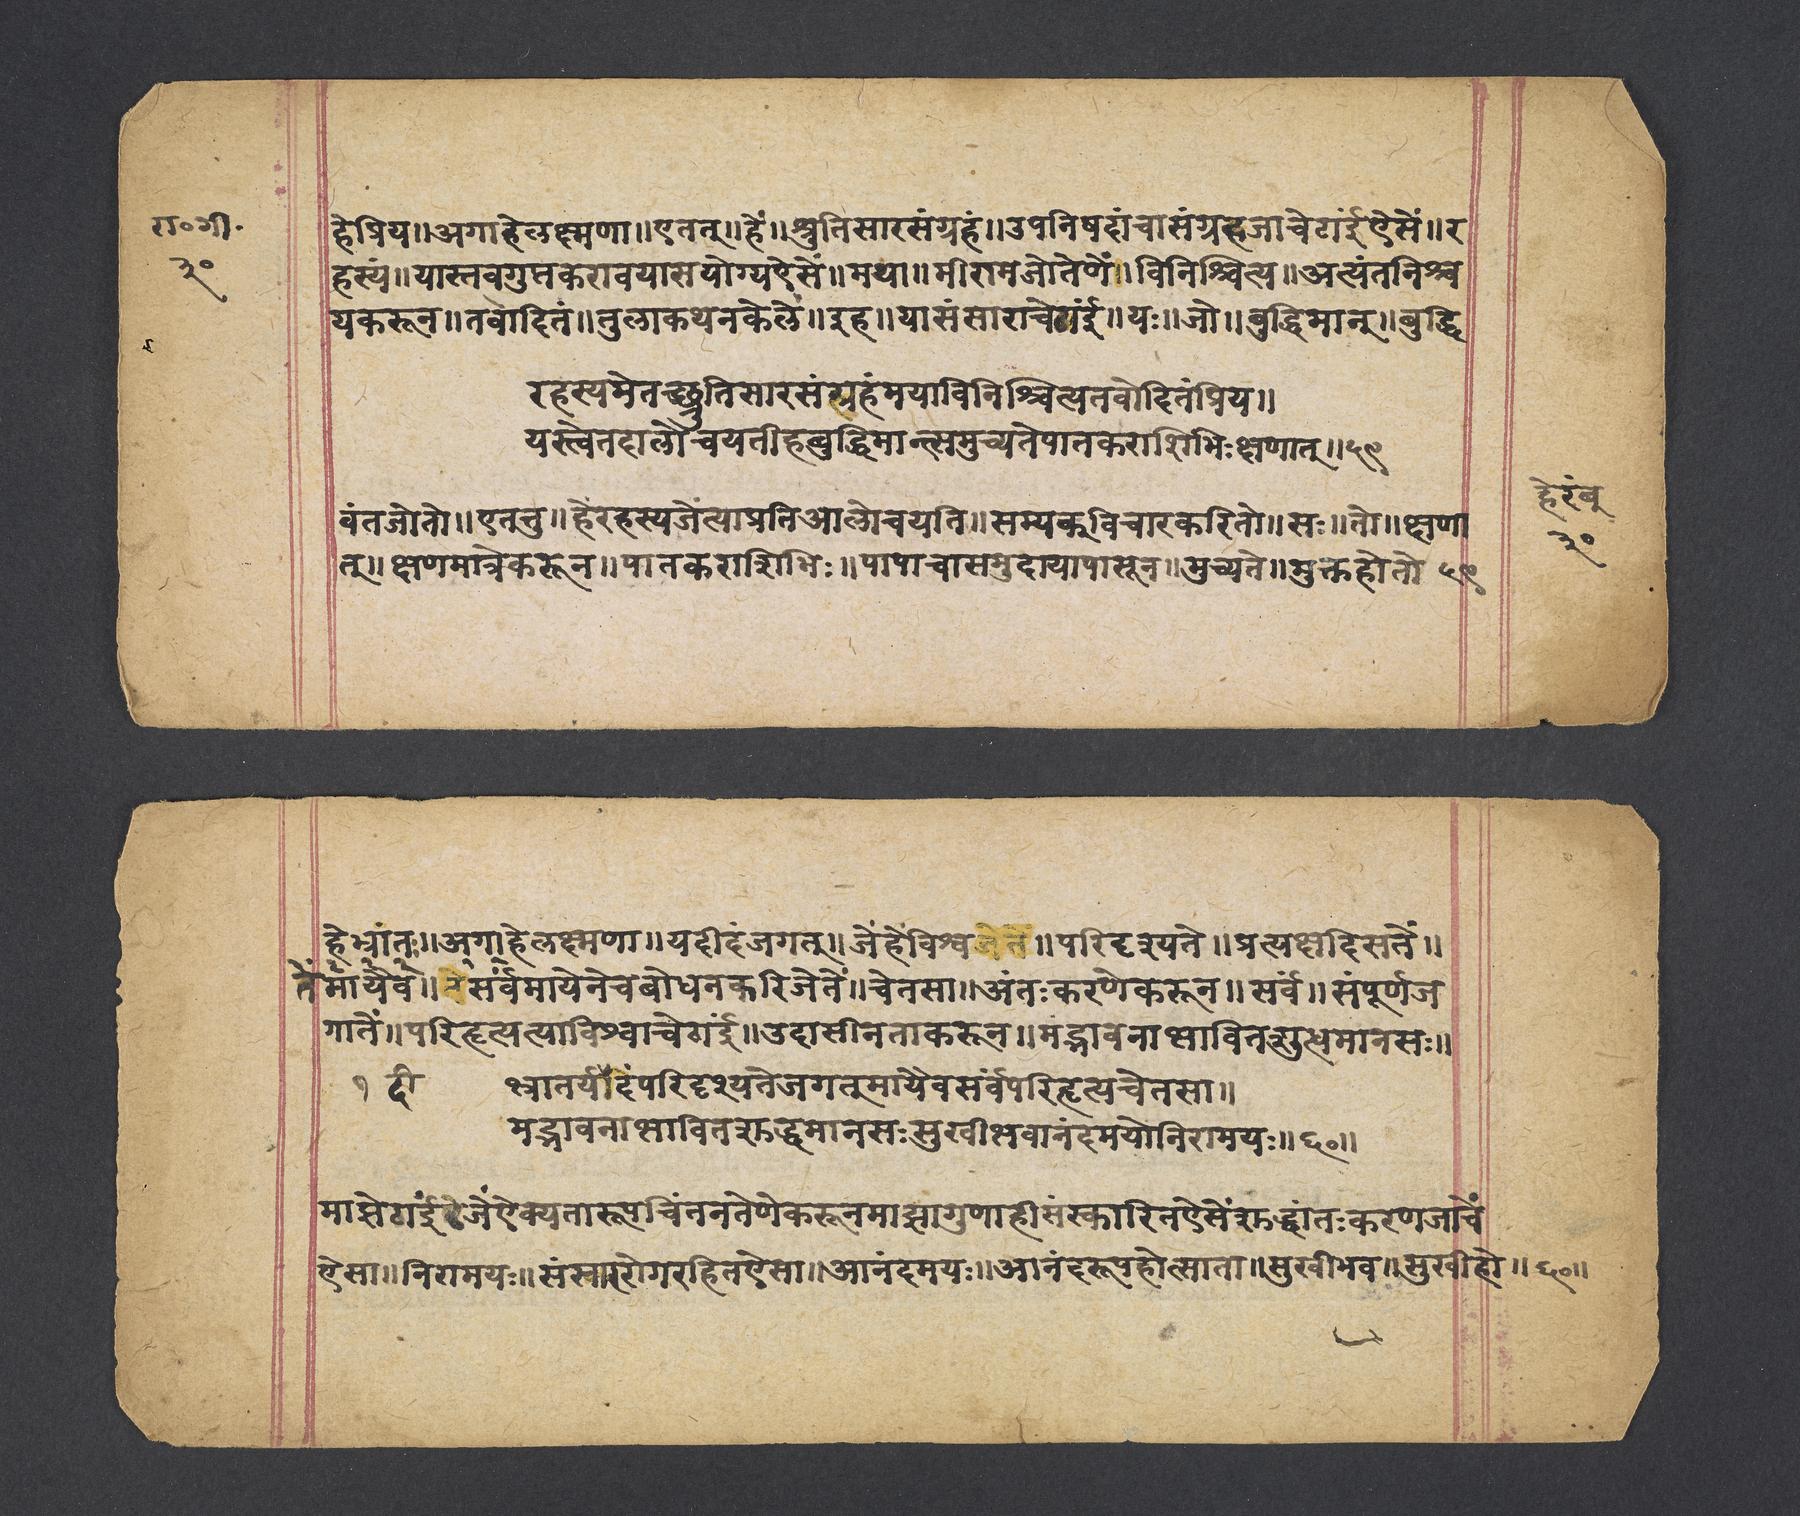 रा०गी०
३०
हेप्रिय॥अगाहेलक्ष्मणा॥एतत्॥हें॥श्रुतिसारसंग्रहं॥उपनिषदांचासंग्रहज्याचेठाईंऐसें॥र
हस्यं॥यास्तवगुप्तकरावयासयोग्यऐसें॥मया॥मीरामजोतेणें॥विनिश्चित्य॥अत्यंतनिश्च
यकरून॥तवोदितं॥तुलाकथनकेलें॥इह॥यासंसाराचेठाईं॥यः॥जो॥बुद्धिमान्॥बुद्धि
रहस्यमेतच्छ्रुतिसारसंग्रहंमयाविनिश्चित्यतवोदितंप्रिय॥
यस्त्वेतदालोचयतीहबुद्धिमान्त्समुच्यतेपातकराशिभिःक्षणात्॥५९
वंतजोतो॥एतत्तु॥हेंरहस्यजेंत्याप्रतिआलोचयति॥सम्यक्विचारकरितो॥सः॥तो॥क्षणा
त्॥क्षणमात्रेंकरून॥पातकराशिभिः॥पापाचासमुदायापासून॥मुच्यते॥मुक्तहोतो ५९
हेरंबु
३०
हेभ्रातः॥अगाहेलक्ष्मणा॥यदीदंजगत्॥जेंहेंविश्व॥परिदृश्यते॥प्रत्यक्षदिसतें॥
तेंमायैव॥सर्वमायेनेचबोधनकरिजेतें॥चेतसा॥अंतःकरणेकरून॥सर्वं॥संपूर्णज
गातें॥परिहृत्यत्याविश्वाचेठाईं॥उदासीनताकरून॥मद्भावनाभावितशुद्धमानसः॥
१ दी
भ्रातर्यदिदंपरिदृश्यतेजगत्मायैवसर्वंपरिहृत्यचेतसा॥
मद्भावनाभावितशुद्धमानसःसुखीभवानंदमयोनिरामयः॥६०॥
माझेठाईंजेंऐक्यतारूपचिंतनतेणेकरूनमाझागुणाहीसंस्कारितऐसेंशुद्धांतःकरणज्याचें
ऐसा॥निरामयः॥संसाररोगरहितऐसा॥आनंदमयः॥आनंदरूपहोत्साता॥सुखीभव॥सुखीहो॥६०॥